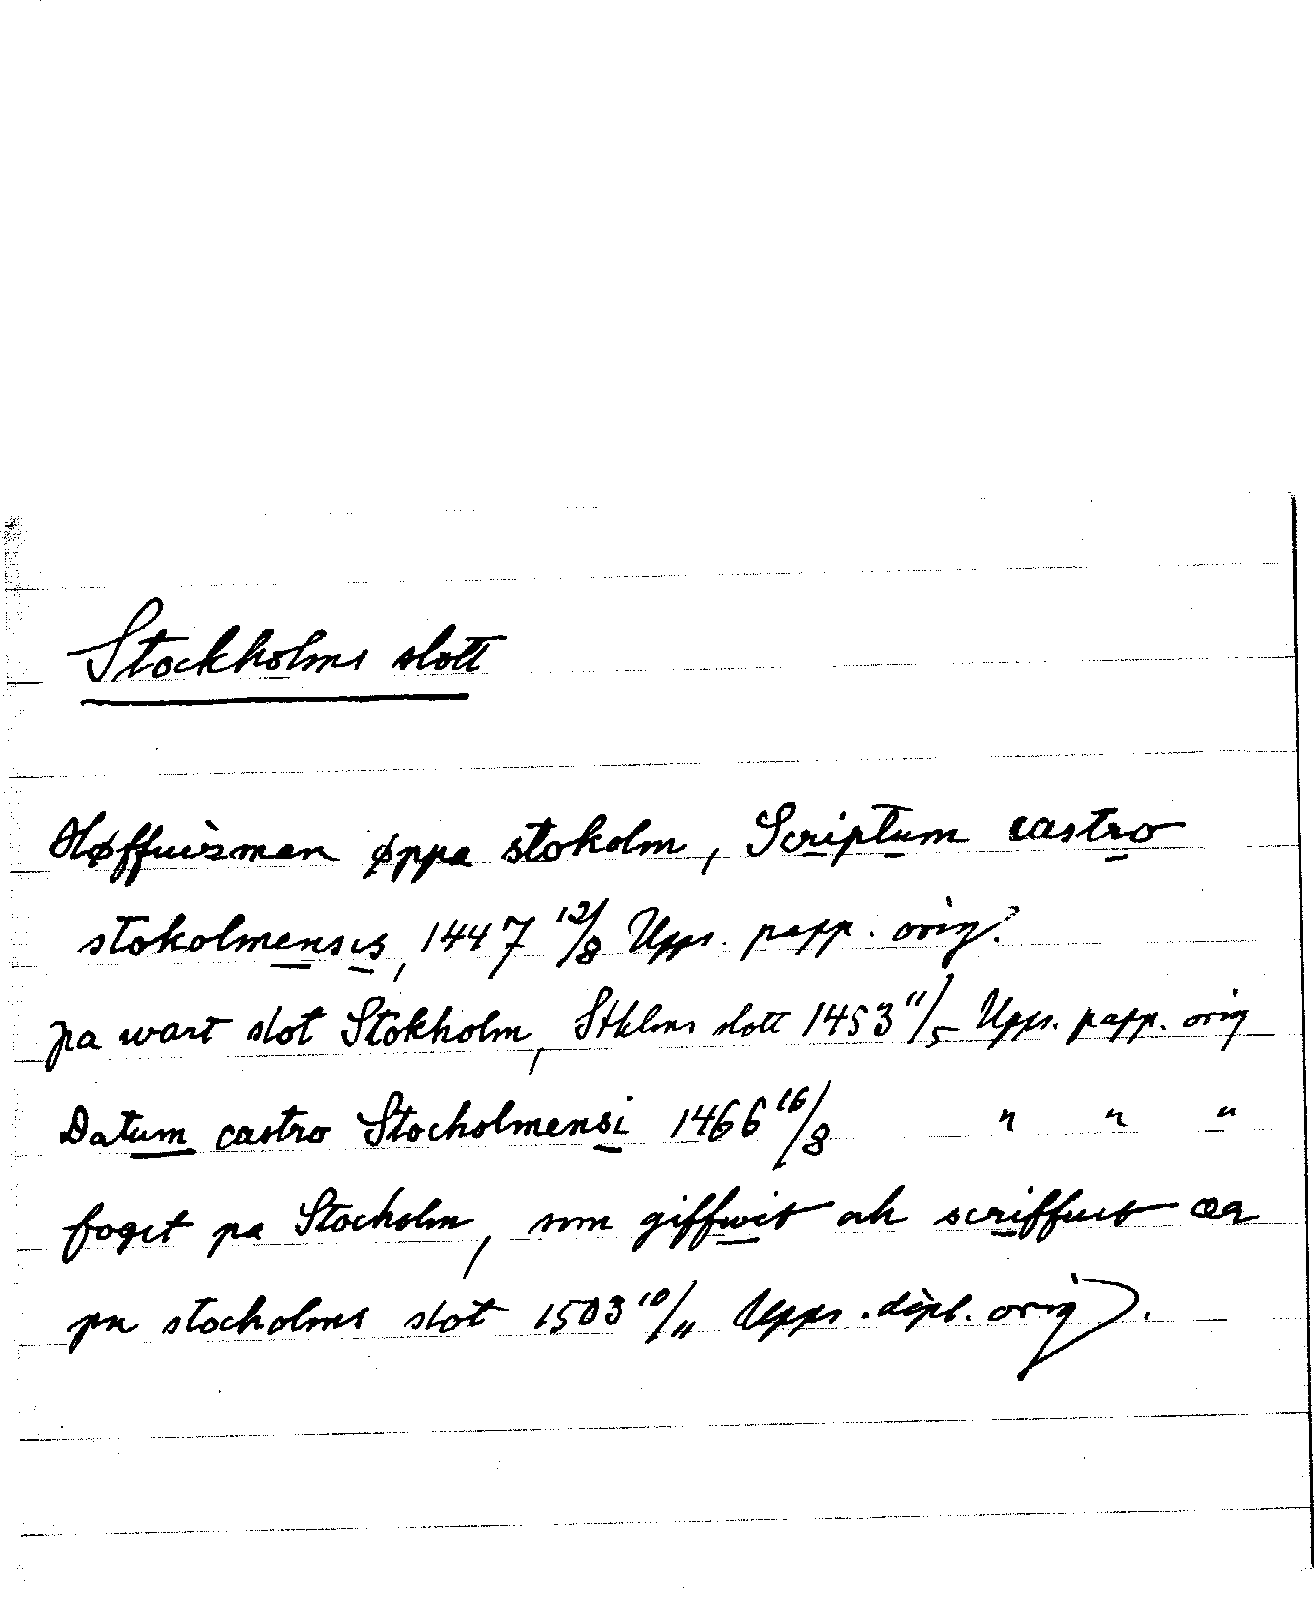 Stockholms slott
Høffwisman øppa stokolm, Scriptum castro
stokolmensis, 1447 12/8 Upps. papp. orig.
pa wart slot Stokholm, Sthlms slott 1453 11/5 Upps. papp. orig
Datum castro Stocholmensi 1466 16/8 " " "
foget pa Stocholm, som giffwit ok scriffuit ær
pa stocholms slot 1503 10/11 Upps. dipl. orig).